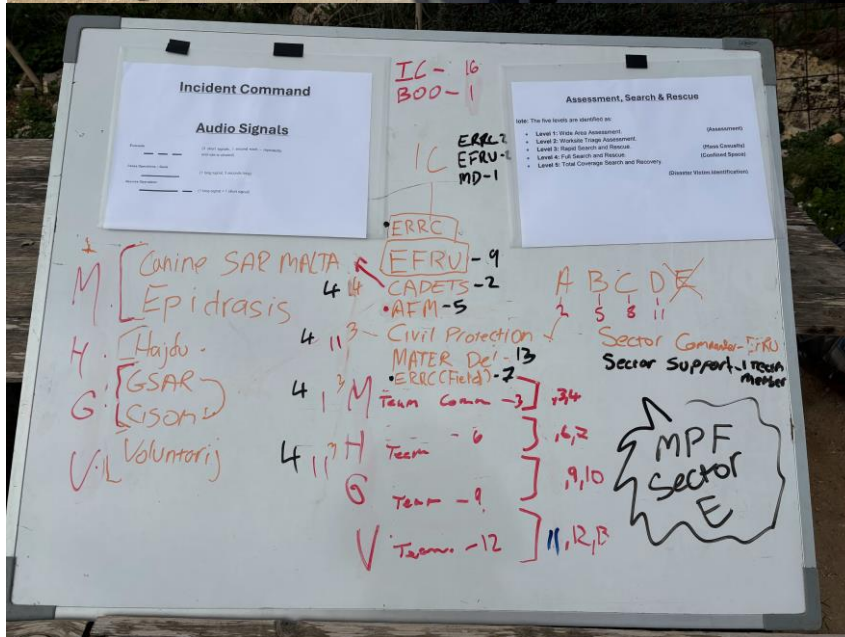 Incident Command
Audio Signals
Assessment, Search & Rescue
Note: The five levels are identified as:
Level 1: Wide Area Assessment. (Assessment)
Level 2: Worksite Triage Assessment.
Level 3: Rapid Search and Rescue. (Mass Casualty)
Level 4: Full Search and Rescue. (Confined Space)
Level 5: Total Coverage Search and Recovery.
(Disaster Victim Identification)
IC - 16
BOO - 1
IC
ERRC 2
EFRU - 2
MD - 1
ERRC
EFRU - 9
CADETS - 2
AFM - 5
Civil Protection
MATER Dei - 13
ERRC (Field) - 7
M Canine SAR MALTA 4
Epidrasis
H Hajdu. 4 11 3
G GSAR 4 1 3
CISOM
V Voluntarij 4 11 3
M Team Comm - 3 ] ,3,4
H Team - 6 ] ,6,7
G Team - 9 ] ,9,10
V Team - 12 ] 11,12,13
A B C D E
2 5 8 11
Sector Commander - EFRU
Sector Support - 1 Team
Member
MPF
Sector
E